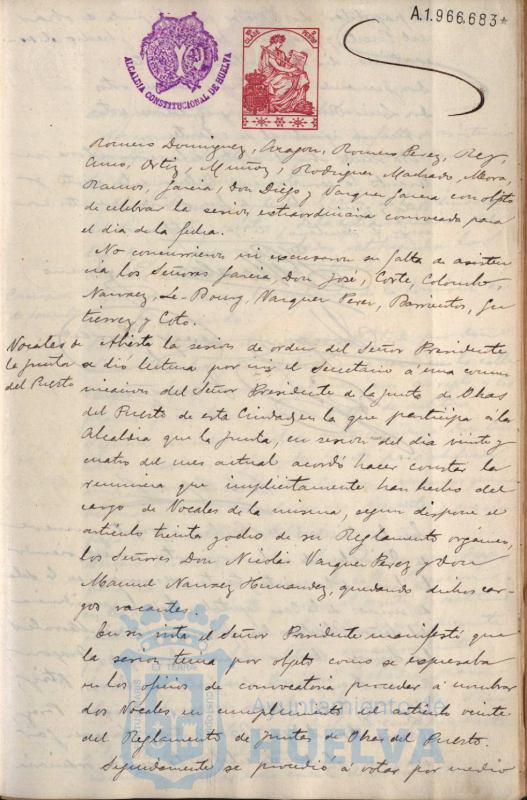 A.1.966.683*
ALCALDIA CONSTITUCIONAL DE HUELVA
Romero Dominguez, Aragon, Romero Perez, Rey,
Cano, Ortiz, Muñoz, Rodriguez Machado, Mora,
Ramos, Garcia, Don Diego y Vazquez Garcia con objeto
de celebrar la sesion extraordinaria convocada para
el dia de la fecha.
No concurrieron ni excusaron su falta de asisten
cia los Señores Garcia, Don José, Corte, Colombo,
Narvaez, Le-Bourg, Vazquez Perez, Barrientos, Gu
tierrez y Coto.
Vocales de
la Junta
del Puerto
Abierta la sesion de orden del Señor Presidente
se dió lectura por mi el Secretario á una comu
nicacion del Señor Presidente de la Junta de Obras
del Puerto de esta Ciudad en la que participa á la
Alcaldia que la Junta, en sesion del dia veinte y
cuatro del mes actual acordó hacer constar la
renuncia que implicitamente han hecho del
cargo de Vocales de la misma, segun dispone el
articulo treinta y ocho de su Reglamento organico,
los Señores Don Nicolás Vazquez Perez y Don
Manuel Narvaez Hernandez, quedando dichos car
gos vacantes.
En su vista el Señor Presidente manifestó que
la sesion tenia por objeto como se expresaba
en los oficios de convocatoria proceder á nombrar
dos Vocales en cumplimiento del articulo veinte
del Reglamento de Juntas de Obras del Puerto.
Seguidamente se procedió á votar por medio
Ayuntamiento de
HUELVA